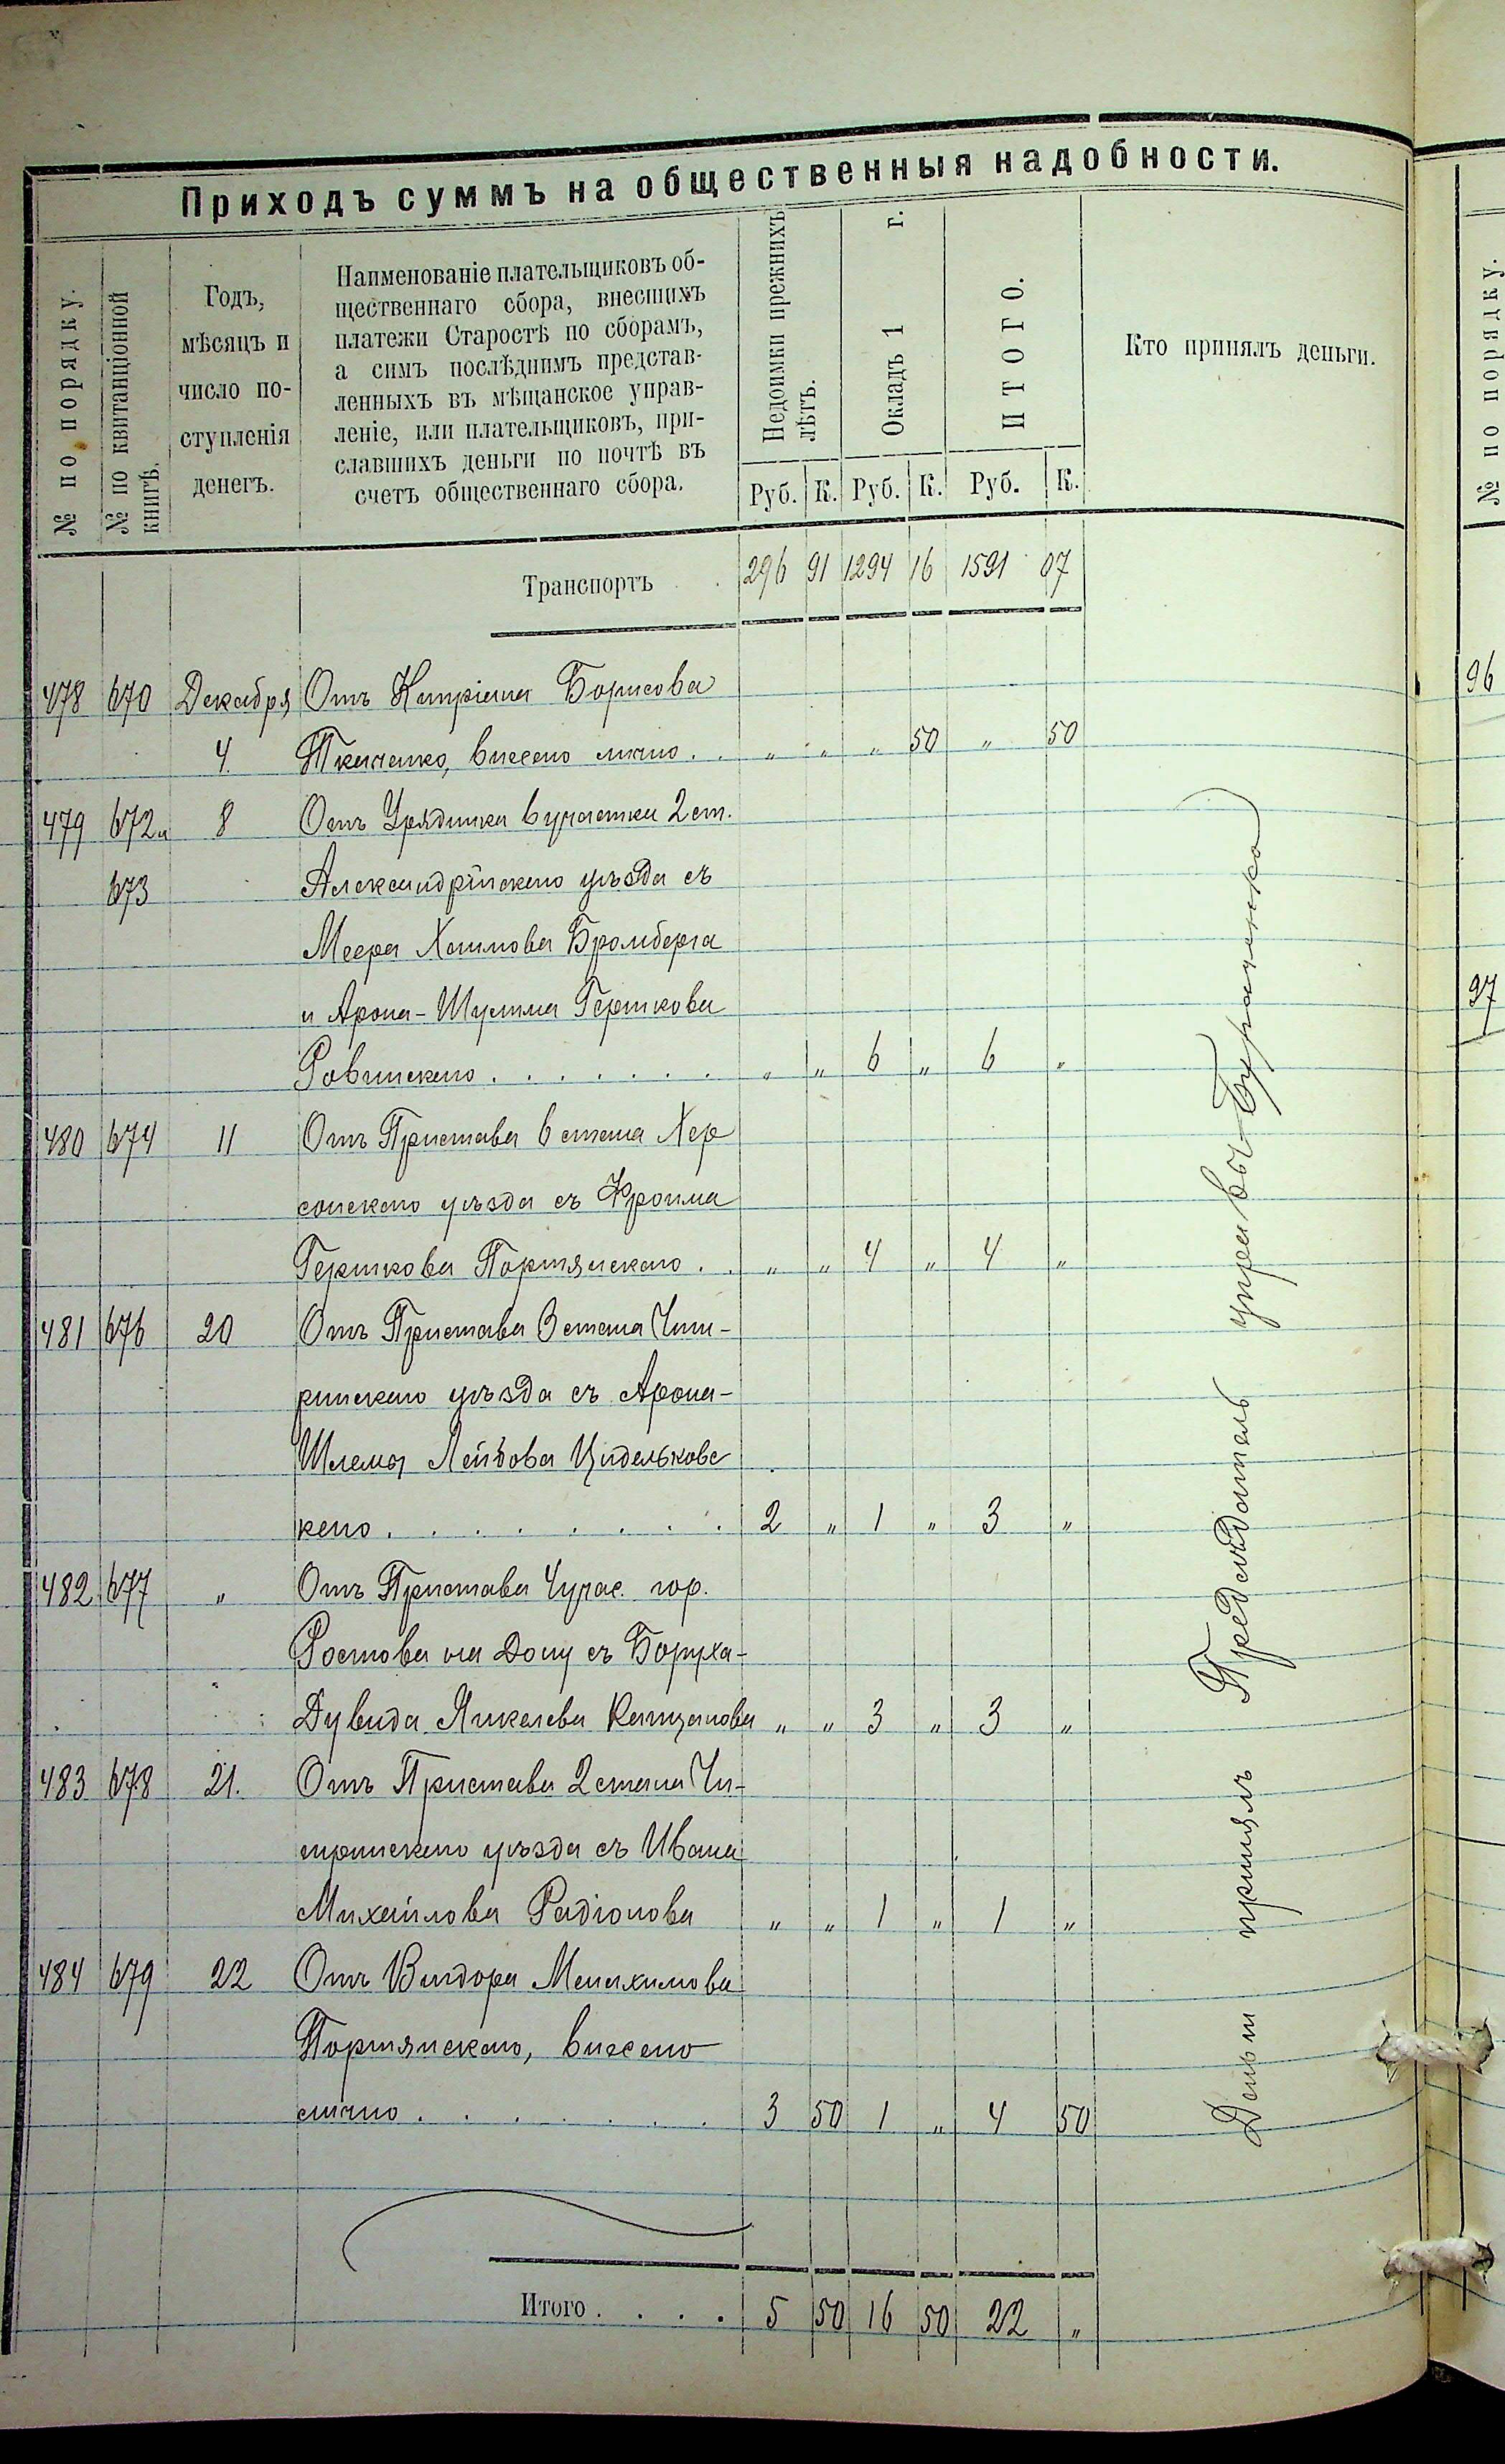 Приходъ суммъ на общественныя надобности.
№ по порядку.
№ по квитанціонной книгѣ.
Годъ,
мѣсяцъ и
число по-
ступленія
денегъ.
Наименованіе плательщиковъ об-
щественнаго сбора, внесшихъ
платежи Старостѣ по сборамъ,
а симъ послѣднимъ представ-
ленныхъ въ мѣщанское управ-
леніе, или плательщиковъ, при-
славшихъ деньги по почтѣ въ
счетъ общественнаго сбора.
Недоимки прежнихъ лѣтъ.
Окладъ 1 г.
ИТОГО.
Кто принялъ деньги.
Руб. К. Руб. К. Руб. К.
Транспортъ . 296 91 1294 16 1591 07
478 670 Декабря Отъ Кипріана Борисова
4. Ткаченко, внесено лично . . " " " 50 " 50
479 672 и 8 Отъ Урядника 6 участка 2 ст.
673 Александрійскаго уѣзда съ
Меера Хаимова Бромберга
и Арона-Шулима Гершкова
Ровинскаго . . . . . . . " " 6 " 6 "
480 674 11 Отъ Пристава 6 стана Хер
сонскаго уѣзда съ Фроима
Гершкова Портянскаго . . " " 4 " 4 "
481 676 20 Отъ Пристава 3 стана Чиги-
ринскаго уѣзда съ Арона-
Шлемы Лейбова Цидельковс
каго . . . . . . . . 2 " 1 " 3 "
482 677 " Отъ Пристава 4 учас. гор.
Ростова на Дону съ Боруха-
Дувида Янкелева Кацманова " " 3 " 3 "
483 678 21. Отъ Пристава 2 стана Чи-
гиринскаго уѣзда съ Ивана
Михайлова Радіонова " " 1 " 1 "
484 679 22 Отъ Вигдора Менахимова
Портянскаго, внесено
лично . . . . . . . 3 50 1 " 4 50
Итого . . . . 5 50 16 50 22 "
Деньги принялъ Предсѣдатель управы
№ по порядку.
96
97